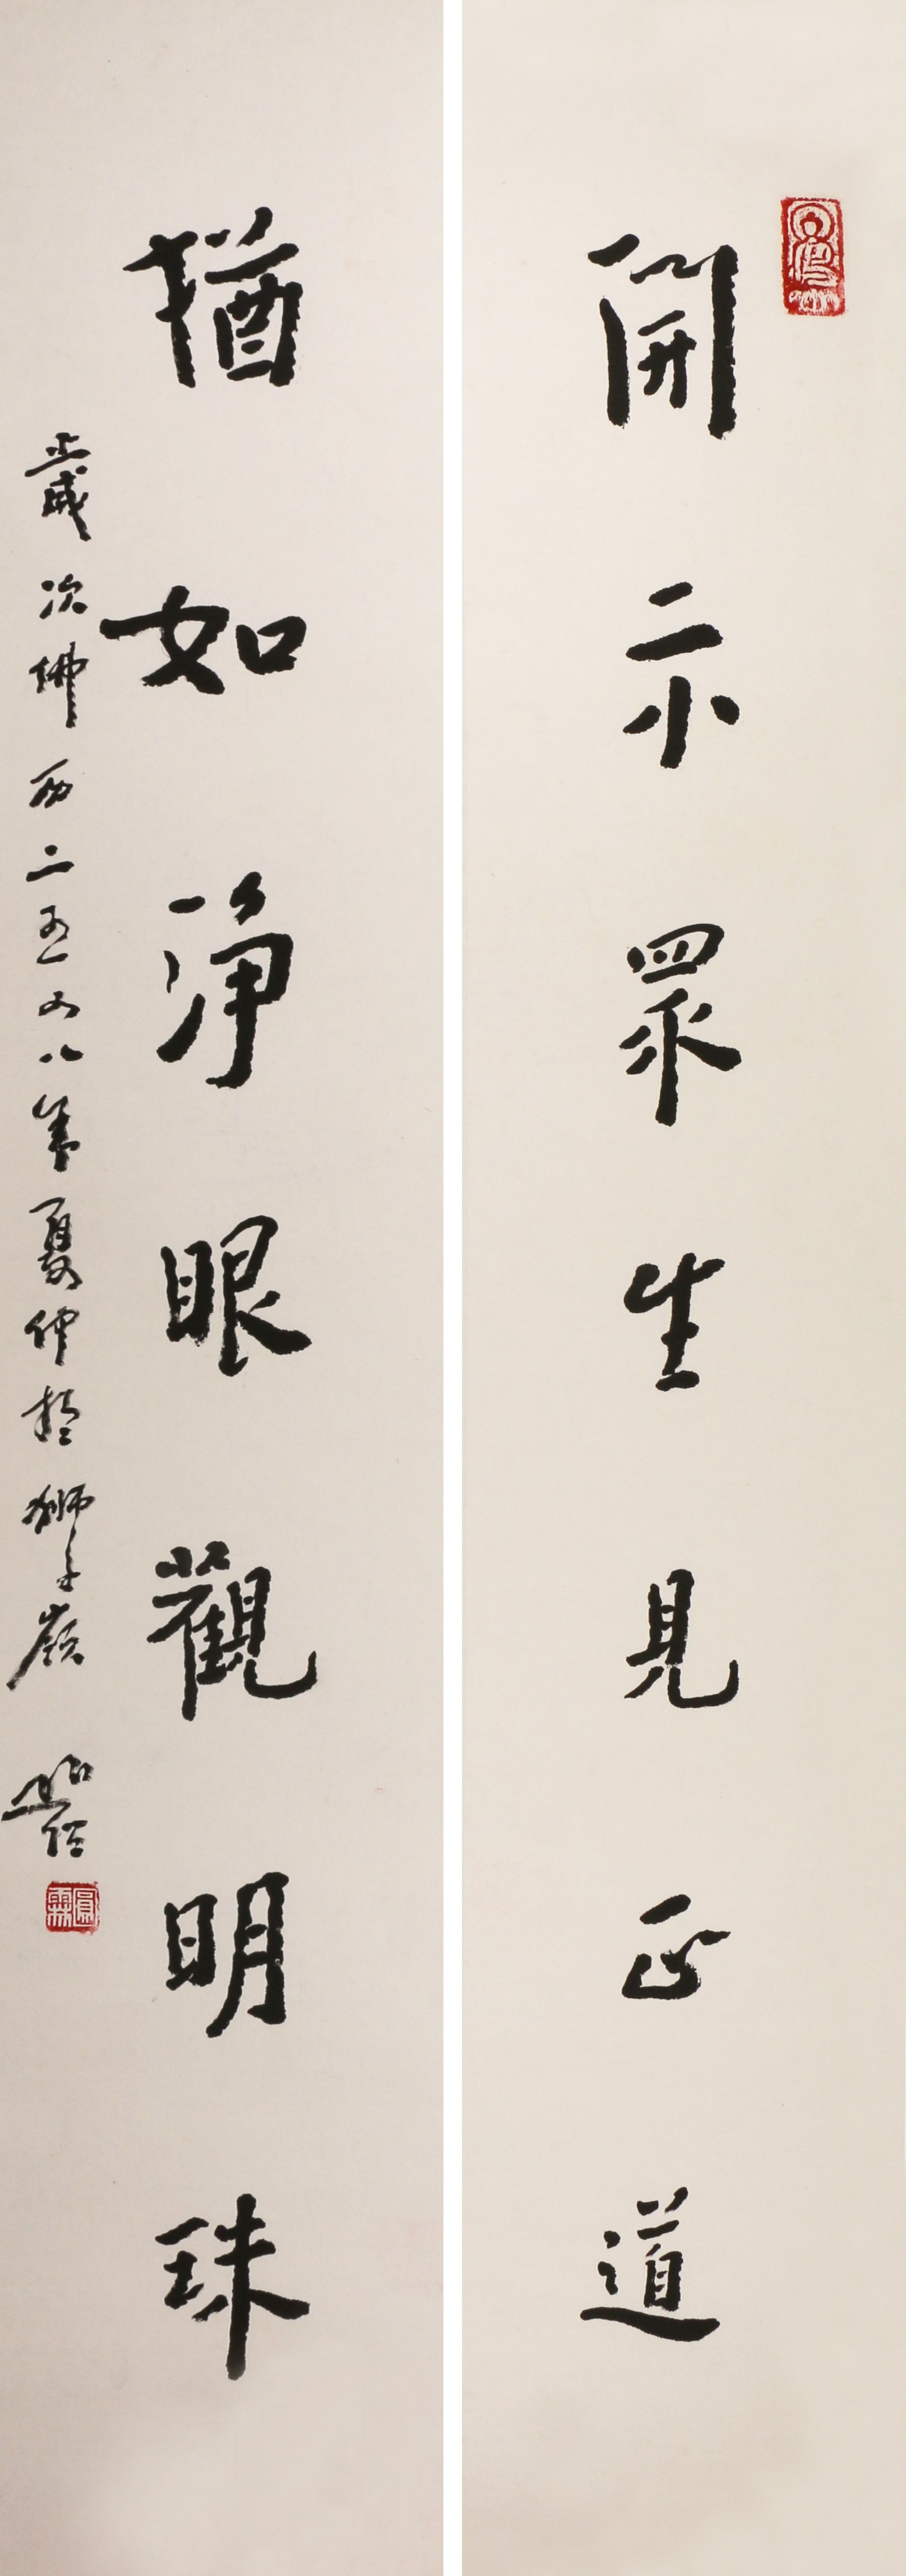 開示眾生見正道
猶如淨眼觀明珠
歲次佛曆二五五八年夏仲於獅子嶺
圓霖